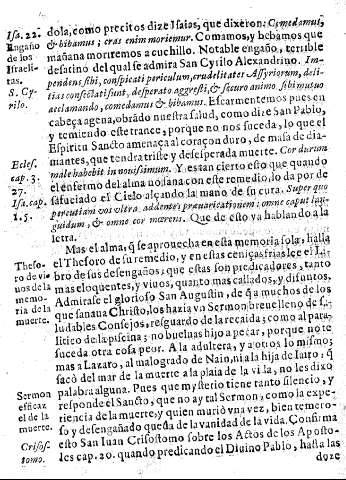 Isa. 22.
Engaño
de los
Israeli-
tas.
S. Cy-
rilo.
Eclef.
cap. 3.
27.
Isa. cap.
1. 5.
Theso-
ro de vi-
uos de la
memo-
ria de la
muerte.
Sermon
eficaz
el de la
muerte.
Crisos-
tomo.
dola, como precitos dize Isaias, que dixeron: Comedamus,
& bibamus; cras enim moriemur. Comamos, y bebamos que
mañana moriremos a cuchillo. Notable engaño, terrible
desatino del qual se admira San Cyrilo Alexandrino. Im-
pendens sibi, conspicati periculum, crudelitates Assyriorum, deli-
tias consectati sunt, desperato aggresti, & securo animo sibi mutuo
acclamando, comedamus & bibamus. Escarmentemos pues en
cabeça agena, obrãdo nuestra salud, como dize San Pablo,
y temiendo este trance, porque no nos suceda, lo que el
Espiritu Sancto amenaça al coraçon duro, de masa de dia-
mantes, que tendra triste y desesperada muerte. Cor durum
male habebit in nouissimum. Y es tan cierto esto que quando
el enfermo del alma no sana con este remedio, lo da por de
safuciado el Cielo alçando la mano de su cura. Super quo
percutiam vos vltra addentes preuaricationem: omne caput lan-
guidum, & omne cor mærens. Que de esto ya hablando a la
letra.
Mas el alma, q̃ se aprouecha en esta memoria sola, halla
el Thesoro de su remedio, y en estas cenizas frias lee el Li-
bro de sus desengaños; que estas son predicadores, tanto
mas eloquentes, y viuos, quanto mas callados, y difuntos.
Admirase el glorioso San Augustin, de q̃ a muchos de los
que sanaua Christo, los hazia vn Sermon breue lleno de sa-
ludables Consejos, resguardo de la recaida; como al para-
litico de la piscina; no bueluas hijo a pecar, porque no te
suceda otra cosa peor. A la adultera, y a otros lo mismo;
mas a Lazaro, al malogrado de Nain, ni a la hija de Iairo, q̃
sacò del mar de la muerte a la plaia de la vida, no les dixo
palabra alguna. Pues que mysterio tiene tanto silencio, y
responde el Sancto, que no ay tal Sermon, como la expe-
riencia de la muerte, y quien murió vna vez, bien temero-
so y desengañado queda de la vanidad de la vida. Confirma
esto San Iuan Crisostomo sobre los Actos de los Aposto-
les cap. 20. quando predicando el Diuino Pablo, hasta las
doze